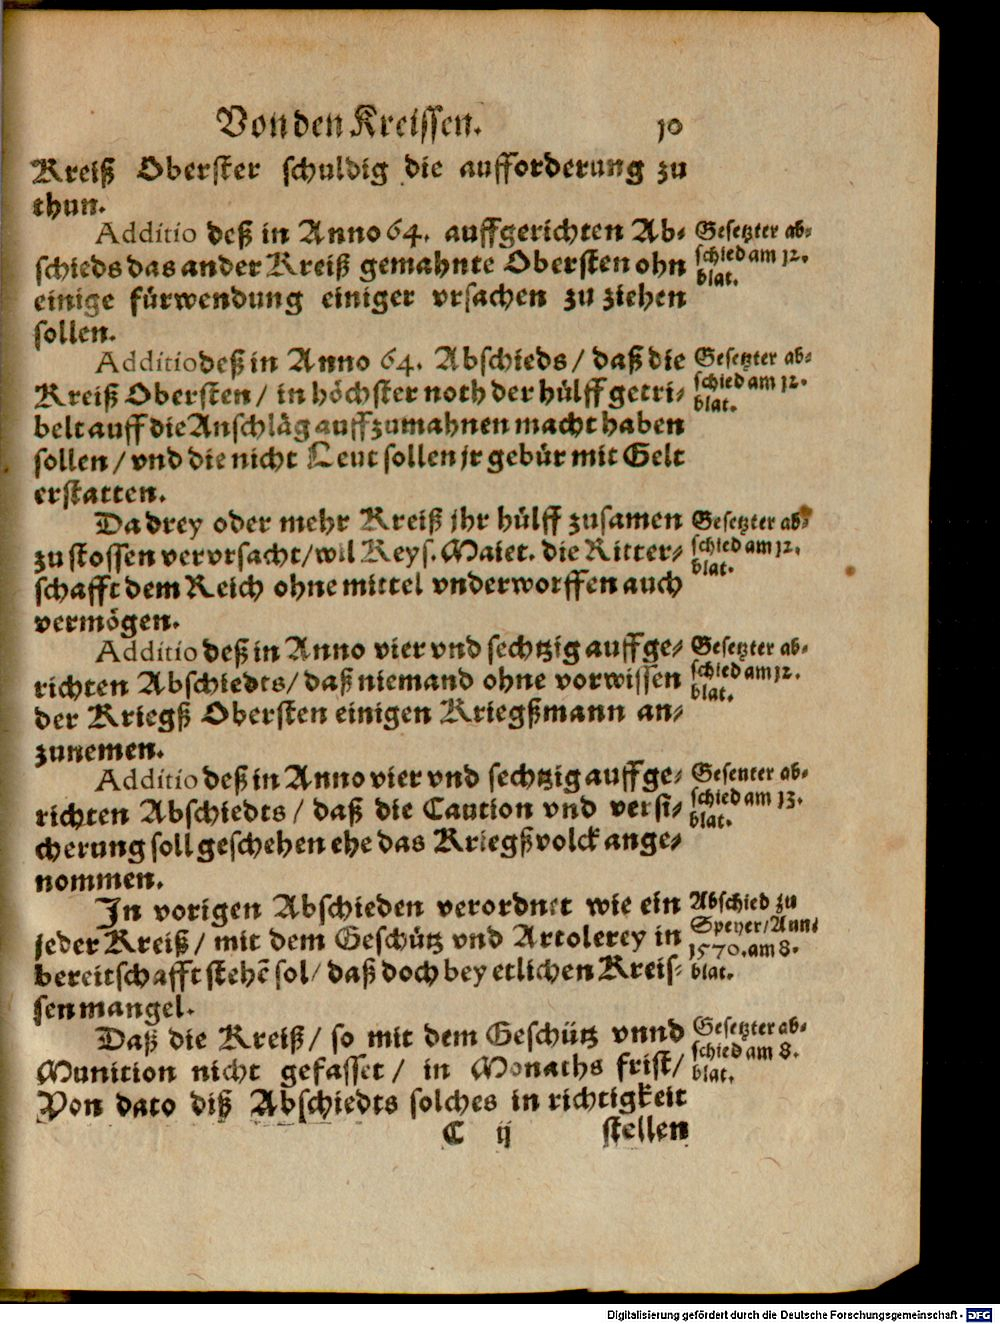 Von den Kreissen. 10
Kreiß Oberster schuldig die aufforderung zu
thun.
Additio deß in Anno 64. auffgerichten Ab-
schieds das ander Kreiß gemahnte Obersten ohn
einige fürwendung einiger vrsachen zu ziehen
sollen.
Gesetzter ab-
schied am 12.
blat.
Additio deß in Anno 64. Abschieds / daß die
Kreiß Obersten / in höchster noth der hülff getri-
belt auff die Anschläg auffzumahnen macht haben
sollen / vnd die nicht Leut sollen jr gebür mit Gelt
erstatten.
Gesetzter ab-
schied am 12.
blat.
Da drey oder mehr Kreiß jhr hülff zusamen
zu stossen vervrsacht / wil Keys. Maiet. die Ritter-
schafft dem Reich ohne mittel vnderworffen auch
vermögen.
Gesetzter ab-
schied am 12.
blat.
Additio deß in Anno vier vnd sechtzig auffge-
richten Abschiedts / daß niemand ohne vorwissen
der Kriegß Obersten einigen Kriegßmann an-
zunemen.
Gesetzter ab-
schied am 12.
blat.
Additio deß in Anno vier vnd sechtzig auffge-
richten Abschiedts / daß die Caution vnd versi-
cherung soll geschehen ehe das Kriegßvolck ange-
nommen.
Gesenter ab-
schied am 13.
blat.
In vorigen Abschieden verordnet wie ein
jeder Kreiß / mit dem Geschütz vnd Artolerey in
bereitschafft stehẽ sol / daß doch bey etlichen Kreis-
sen mangel.
Abschied zu
Speyer / Ann-
1570. am 8.
blat.
Daß die Kreiß / so mit dem Geschütz vnnd
Munition nicht gefasset / in Monaths frist /
Von dato diß Abschiedts solches in richtigkeit
Gesetzter ab-
schied am 8.
blat.
C ij stellen
Digitalisierung gefördert durch die Deutsche Forschungsgemeinschaft - DFG